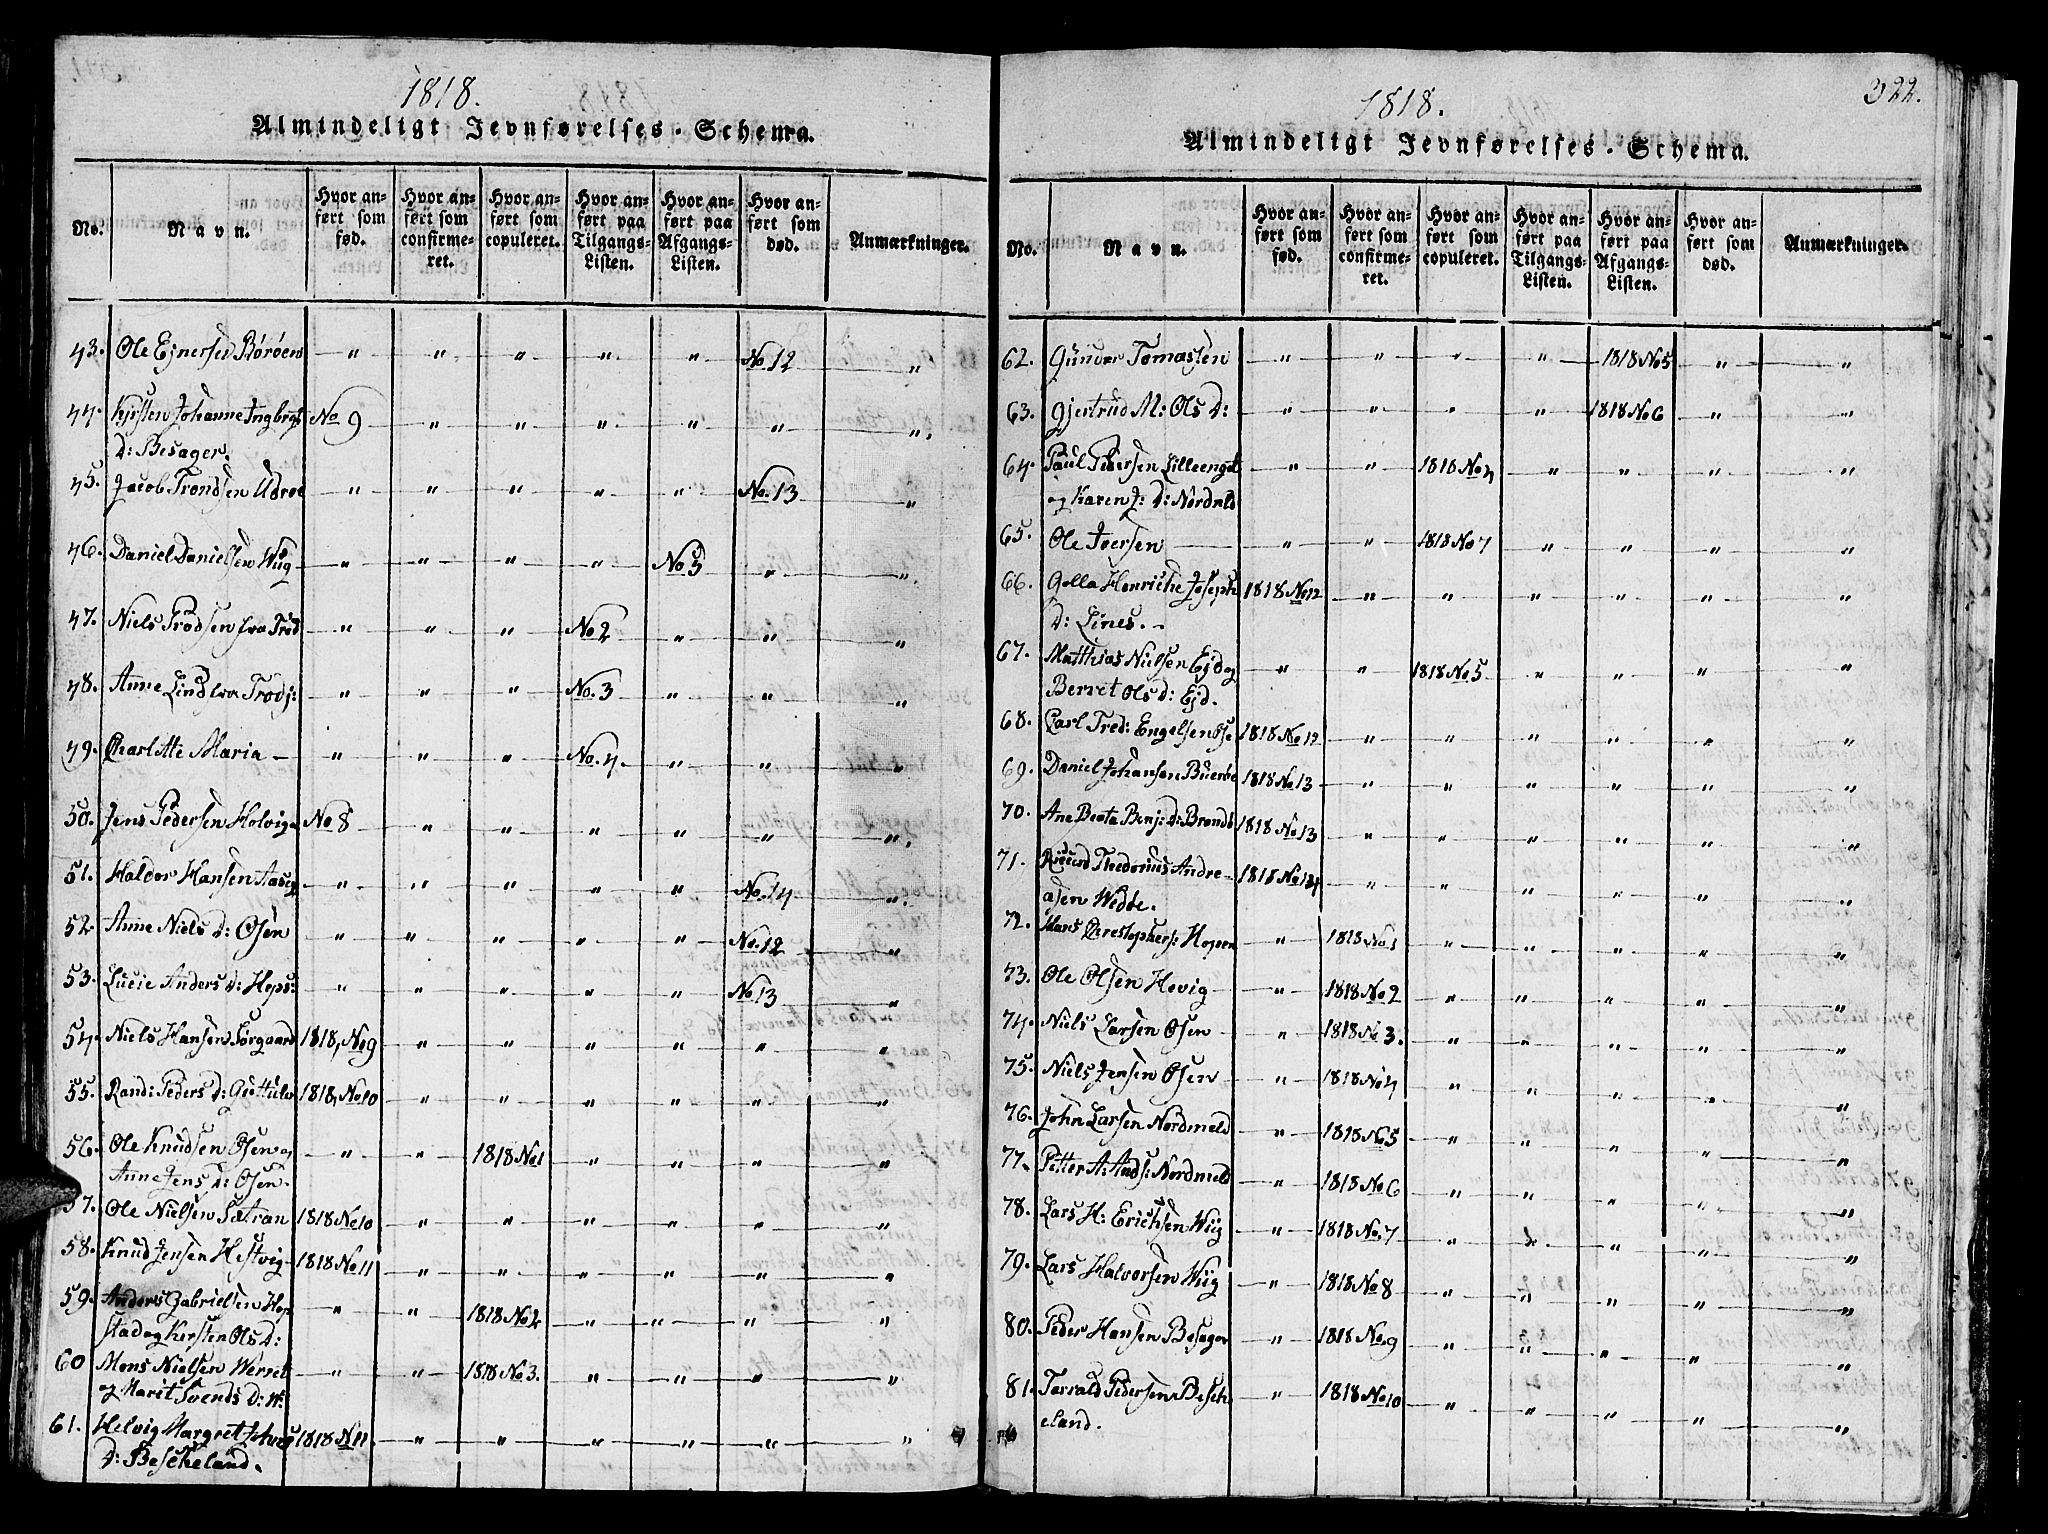 1818.
Almindeligt Jevnførelses-Schema.
No. Navn. Hvor anført som fød. Hvor anført som confirmeret. Hvor anført som copuleret. Hvor anført paa Tilgangs-Listen. Hvor anført paa Afgangs-Listen. Hvor anført som død. Anmærkninger.
43. Ole Ejnersen Børøen " " " " " No. 12 "
44. Kirsten Johanne Ingbrgts No 9 " " " " " "
D: Besager.
45. Jacob Trondsen Udroe " " " " " No. 13 "
46. Daniel Danielsen Wiig " " " " No 5 " "
47. Niels Trodsen fra Trod " " " No 2 " " "
48. Anne Lind fra Trods: " " " No. 3 " " "
49. Charlotte Maria " " " No. 4. " " "
50. Jens Pedersen Holvig No 8 " " " " " "
51. Haldor Hansen Aasey " " " " " No. 14 "
52. Anne Niels D: Osen " " " " " No. 12 "
53. Lucie Anders D: Heps: " " " " " No 13 "
54. Niels Hansen Sørgaard 1818, No 9 " " " " " "
55. Rand: Peders D: 1818, No 10 " " " " " "
56. Ole Knudsen Osen og " " 1818 No 1 " " " "
Anne Jens D: Osen.
57. Ole Nielsen Sætran 1818 No 10 " " " " " "
58. Knud Jensen Hestvig 1818 No 11 " " " " " "
59. Anders Gabrielsen Hop " " 1818 No 2 " " " "
stad og Kersten Ols D:
60 Mons Nielsen Werret " " 1818 No 3. " " " "
og Marit Svends D: W:
61. Helvig Margret 1818 No 11. " " " " " "
D: Bescheland.
1818.
322.
Almindeligt Jevnførelses-Schema.
No. Navn. Hvor anført som fød. Hvor anført som confirmeret. Hvor anført som copuleret. Hvor anført paa Tilgangs-Listen. Hvor anført paa Afgangs-Listen. Hvor anført som død. Anmærkninger.
62. Gunder Tomassen " " " " 1818 No 5 " "
63. Gjertrud M: Ols D: " " " " 1818 No 6 " "
64. Paul Pedersen Lilleenget " " 1818 No 4 " " " "
og Karen J: D: Nordmld
65. Ole Iversen " " 1818 No 7 " " " "
66. Golla Henriche Joseph 1818 No 12 " " " " " "
D: Lines.
67. Matthias Nielsen Ejd og " " 1818 No. 5 " " " "
Berret Ols D: Ejd.
68. Carl Fred: Engelsen Ose 1818 No 12 " " " " " "
69. Daniel Johansen 1818 No 13 " " " " " "
70. Ane Beata Benj: D: Brands 1818 No 13 " " " " " "
71. Theodorius Andre- 1818 No 14 " " " " " "
asen Wedve.
72. Hans Chrestophers: Hopen " 1818 No 1 " " " " "
73. Ole Olsen Hevig " 1818 No 2 " " " " "
74. Niels Larsen Osen " 1818 No 3. " " " " "
75. Niels Jensen Osen " 1818 No 4 " " " " "
76. John Larsen Nordmeld " 1818 No 5 " " " " "
77. Petter A: Ands: Nordmeld " 1818 No 6 " " " " "
78. Lars H: Erichsen Wiig " 1818 No 7 " " " " "
79. Lars Halvorsen Wiig " 1818 No 8 " " " " "
80. Peder Hansen Besager " 1818 No 9 " " " " "
81. Torrald Pedersen Besch- " 1818 No 10 " " " " "
eland.